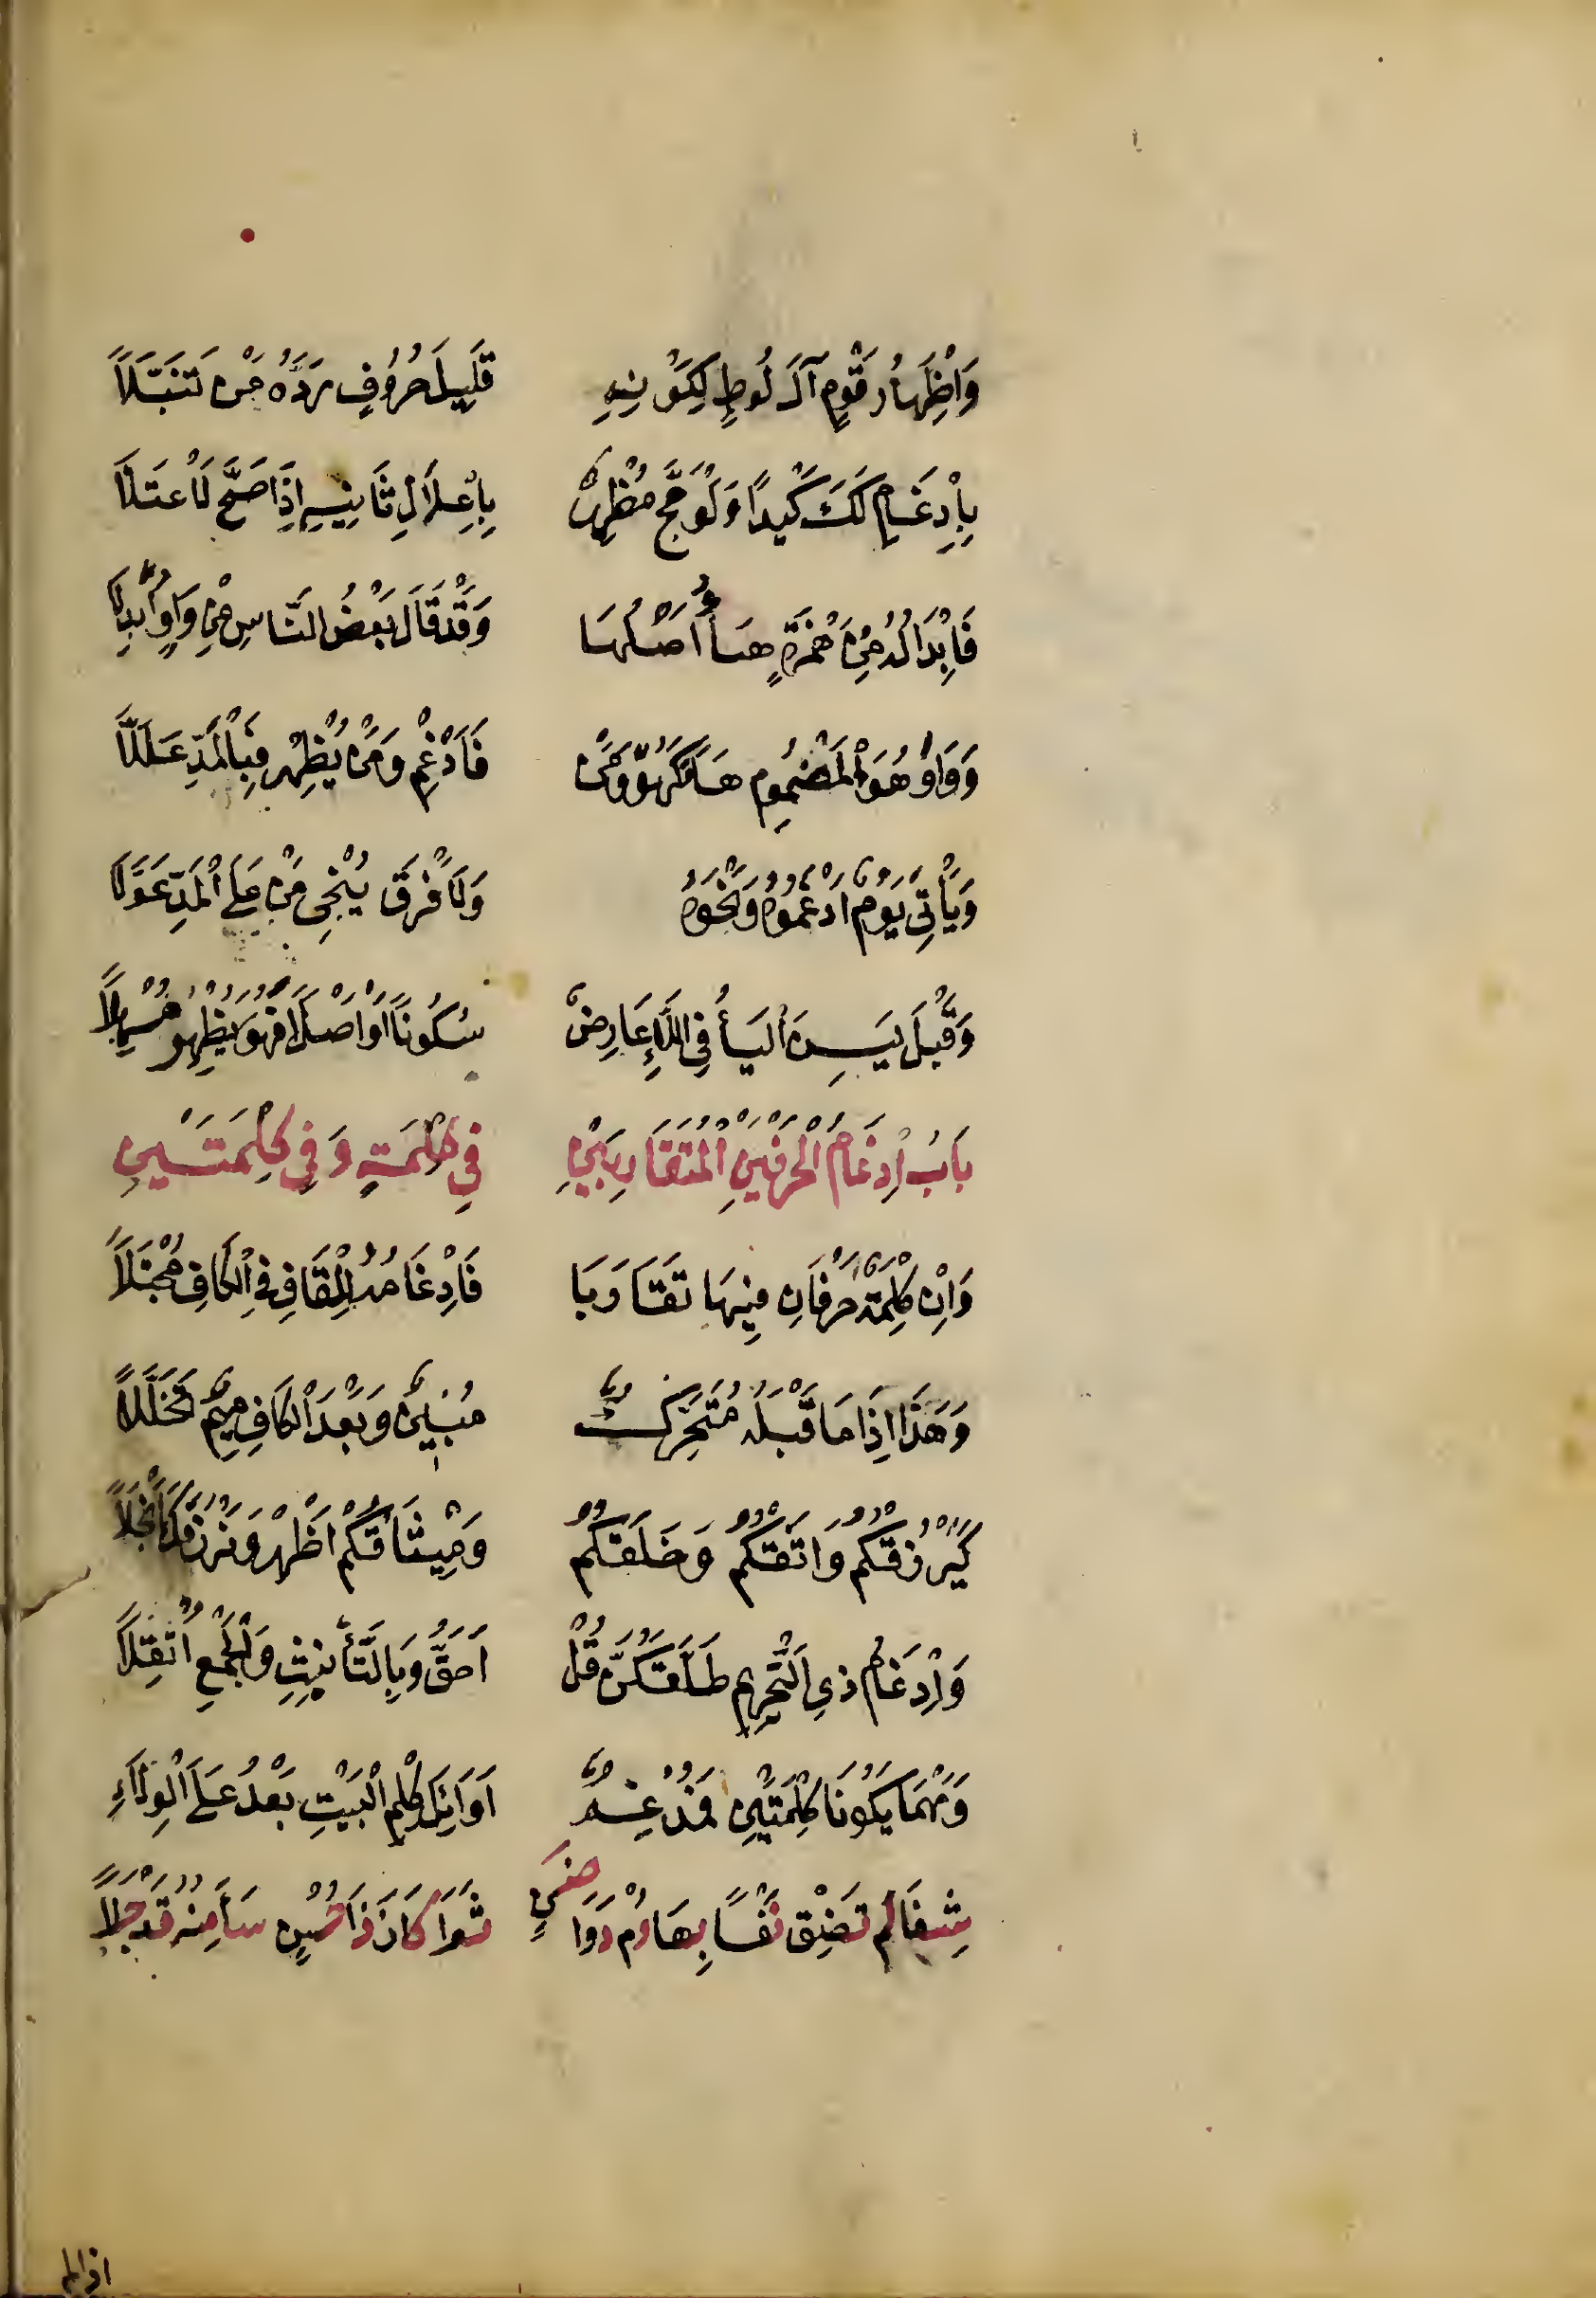 وَاِظْهَارُ قَوْمٍ آلَ لُوطٍ لِكَوْنِهِ قَلِيلَ حُرُوفٍ رَدَّهُ مَنْ تَنَبَّلَا
بِاِدْغَامِ لَكَ كَيْدًا وَلَوْ حَجَّ مُظْهِرٌ بِاِعْلَالِ ثَانِيهِ اِذَا صَحَّ لَاعْتَلَا
فَاِبْدَالُهُ مِنْ هَمْزَةٍ هَاءٌ اَصْلُهَا وَقَدْ قَالَ بَعْضُ النَّاسِ مِنْ وَاوٍ اُبْدِلَا
وَوَاوُ هُوَ الْمَضْمُومِ هَاءً كَهُوَّ وَمَنْ فَاَدْغِمْ وَمَنْ يُظْهِرْ فَبِالْمَدِّ عَلَّلَا
وَيَأْتِيَ يَوْمٌ اَدْغَمُوهُ وَنَحْوَهُ وَلَا فَرْقَ يُنْجِي مَنْ عَلَى الْمَدِّ عَوَّلَا
وَقَبْلَ يَئِسْنَ الْيَاءُ فِي اللَّاءِ عَارِضٌ سُكُونًا اَوْ اَصْلًا فَهُوَ يُظْهِرُ مُسْهِلًا
بَابُ اِدْغَامِ الْحَرْفَيْنِ الْمُتَقَارِبَيْنِ فِي كَلِمَةٍ وَفِي كَلِمَتَيْنِ
وَاِنْ كَلِمَةٌ حَرْفَانِ فِيهَا تَقَارَبَا فَاِدْغَامُهُ لِلْقَافِ فِي الْكَافِ مُجْتَلَا
وَهَذَا اِذَا مَا قَبْلَهُ مُتَحَرِّكٌ مُبِينٌ وَبَعْدَ الْكَافِ مِيمٌ تَخَلَّلَا
كَيَرْزُقْكُمُ وَاثَقْكُمُ وَخَلَقْكُمُ وَمِيثَاقَكُمْ اَظْهِرْ وَنَرْزُقُكَ انْجَلَا
وَاِدْغَامُ ذِي التَّحْرِيمِ طَلَّقَكُنَّ قُلْ اَحَقُّ وَبِالتَّأْنِيثِ وَالْجَمْعِ اُثْقِلَا
وَمَهْمَا يَكُونَا كَلِمَتَيْنِ فَمُدْغِمٌ اَوَائِلَ كَلِمِ الْبَيْتِ بَعْدُ عَلَى الْوِلَاءِ
شِفَا لَمْ تَضِقْ نَفْسًا بِهَا رُمْ دَوَا ضَنٍ ثَوَا كَانَ ذَا حُسْنٍ سَأَى مِنْهُ قَدْ جَلَا
اذا لم